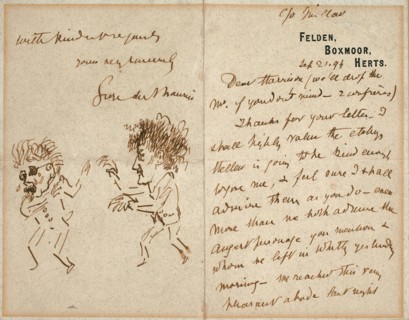 with kindest regards
yours very sincerely
George du Maurier
FELDEN,
BOXMOOR,
HERTS.
Sep 21. 94
Dear Harrison (we'll drop the
Mr. if you don't mind – 2 confrères)
Thanks for your letter – I
shall highly value the etchings
is going to be kind enough
to give me, & feel sure I shall
admire them as you do – even
more than we both admire the
august personage you mention &
whom we left in Whitby yesterday
morning – we reached this very
pleasant abode last night